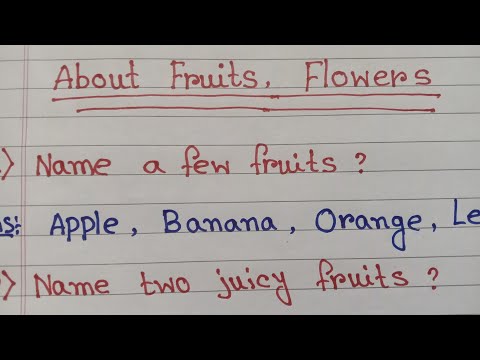 About Fruits, Flowers
Name a few fruits ?
Apple, Banana, Orange,
Name two juicy fruits ?